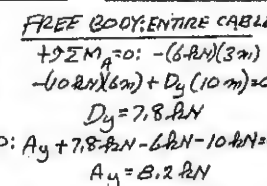 FREE BODY: ENTIRE CABLE
+↺ΣM_A=0: -(6kN)(3m)
-(10kN)(6m)+D_y(10m)=0
D_y=7.8kN
0: A_y+7.8kN-6kN-10kN=
A_y=8.2kN